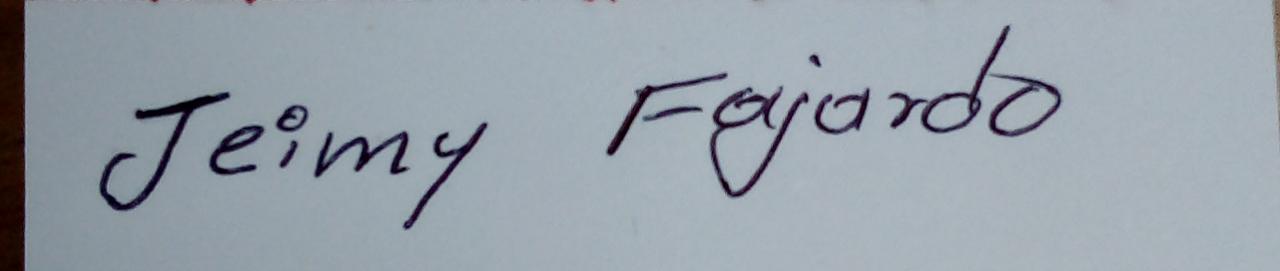 Jeimy Fajardo